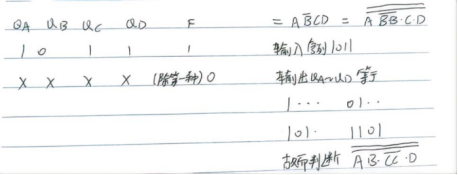 QA QB QC QD F = AB̅CD = \overline{\overline{A B̅B̅·C·D}}
1 0 1 1 1 输入序列1011
X X X X (除第一种) 0 输出QA~QD 等于
1··· 01··
101· 1101
故所判断 \overline{\overline{A B·C̅C̅·D}}